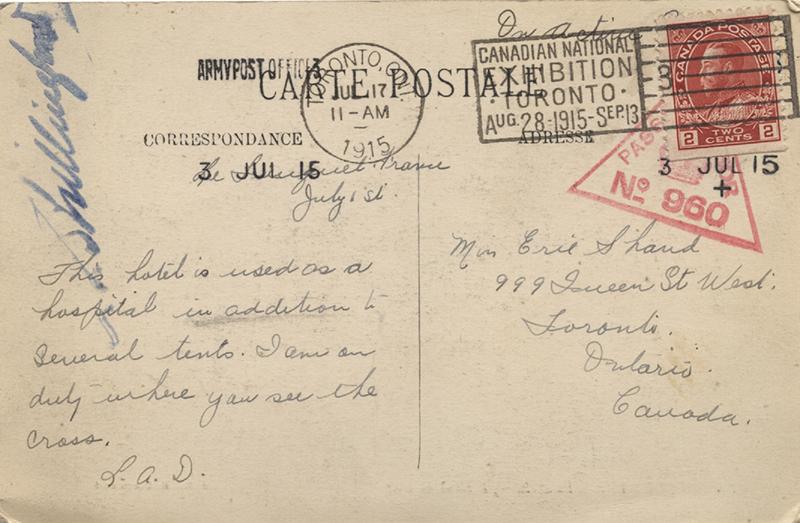 On active
ARMY POST OFFICE 3
CARTE POSTALE
TORONTO, ONT.
JUL 17
11-AM
1915
CANADIAN NATIONAL
EXHIBITION
·TORONTO·
AUG. 28-1915-SEP. 13
CANADA POSTAGE
2 TWO CENTS 2
CORRESPONDANCE
ADRESSE
3 JUL 15
3 JUL 15
+
No 960
Shillington
France
July 1st.
This hotel is used as a
hospital in addition to
several tents. I am on
duty where you see the
cross.
L. A. D.
Miss Erie Shand
999 Queen St West.
Toronto.
Ontario.
Canada.